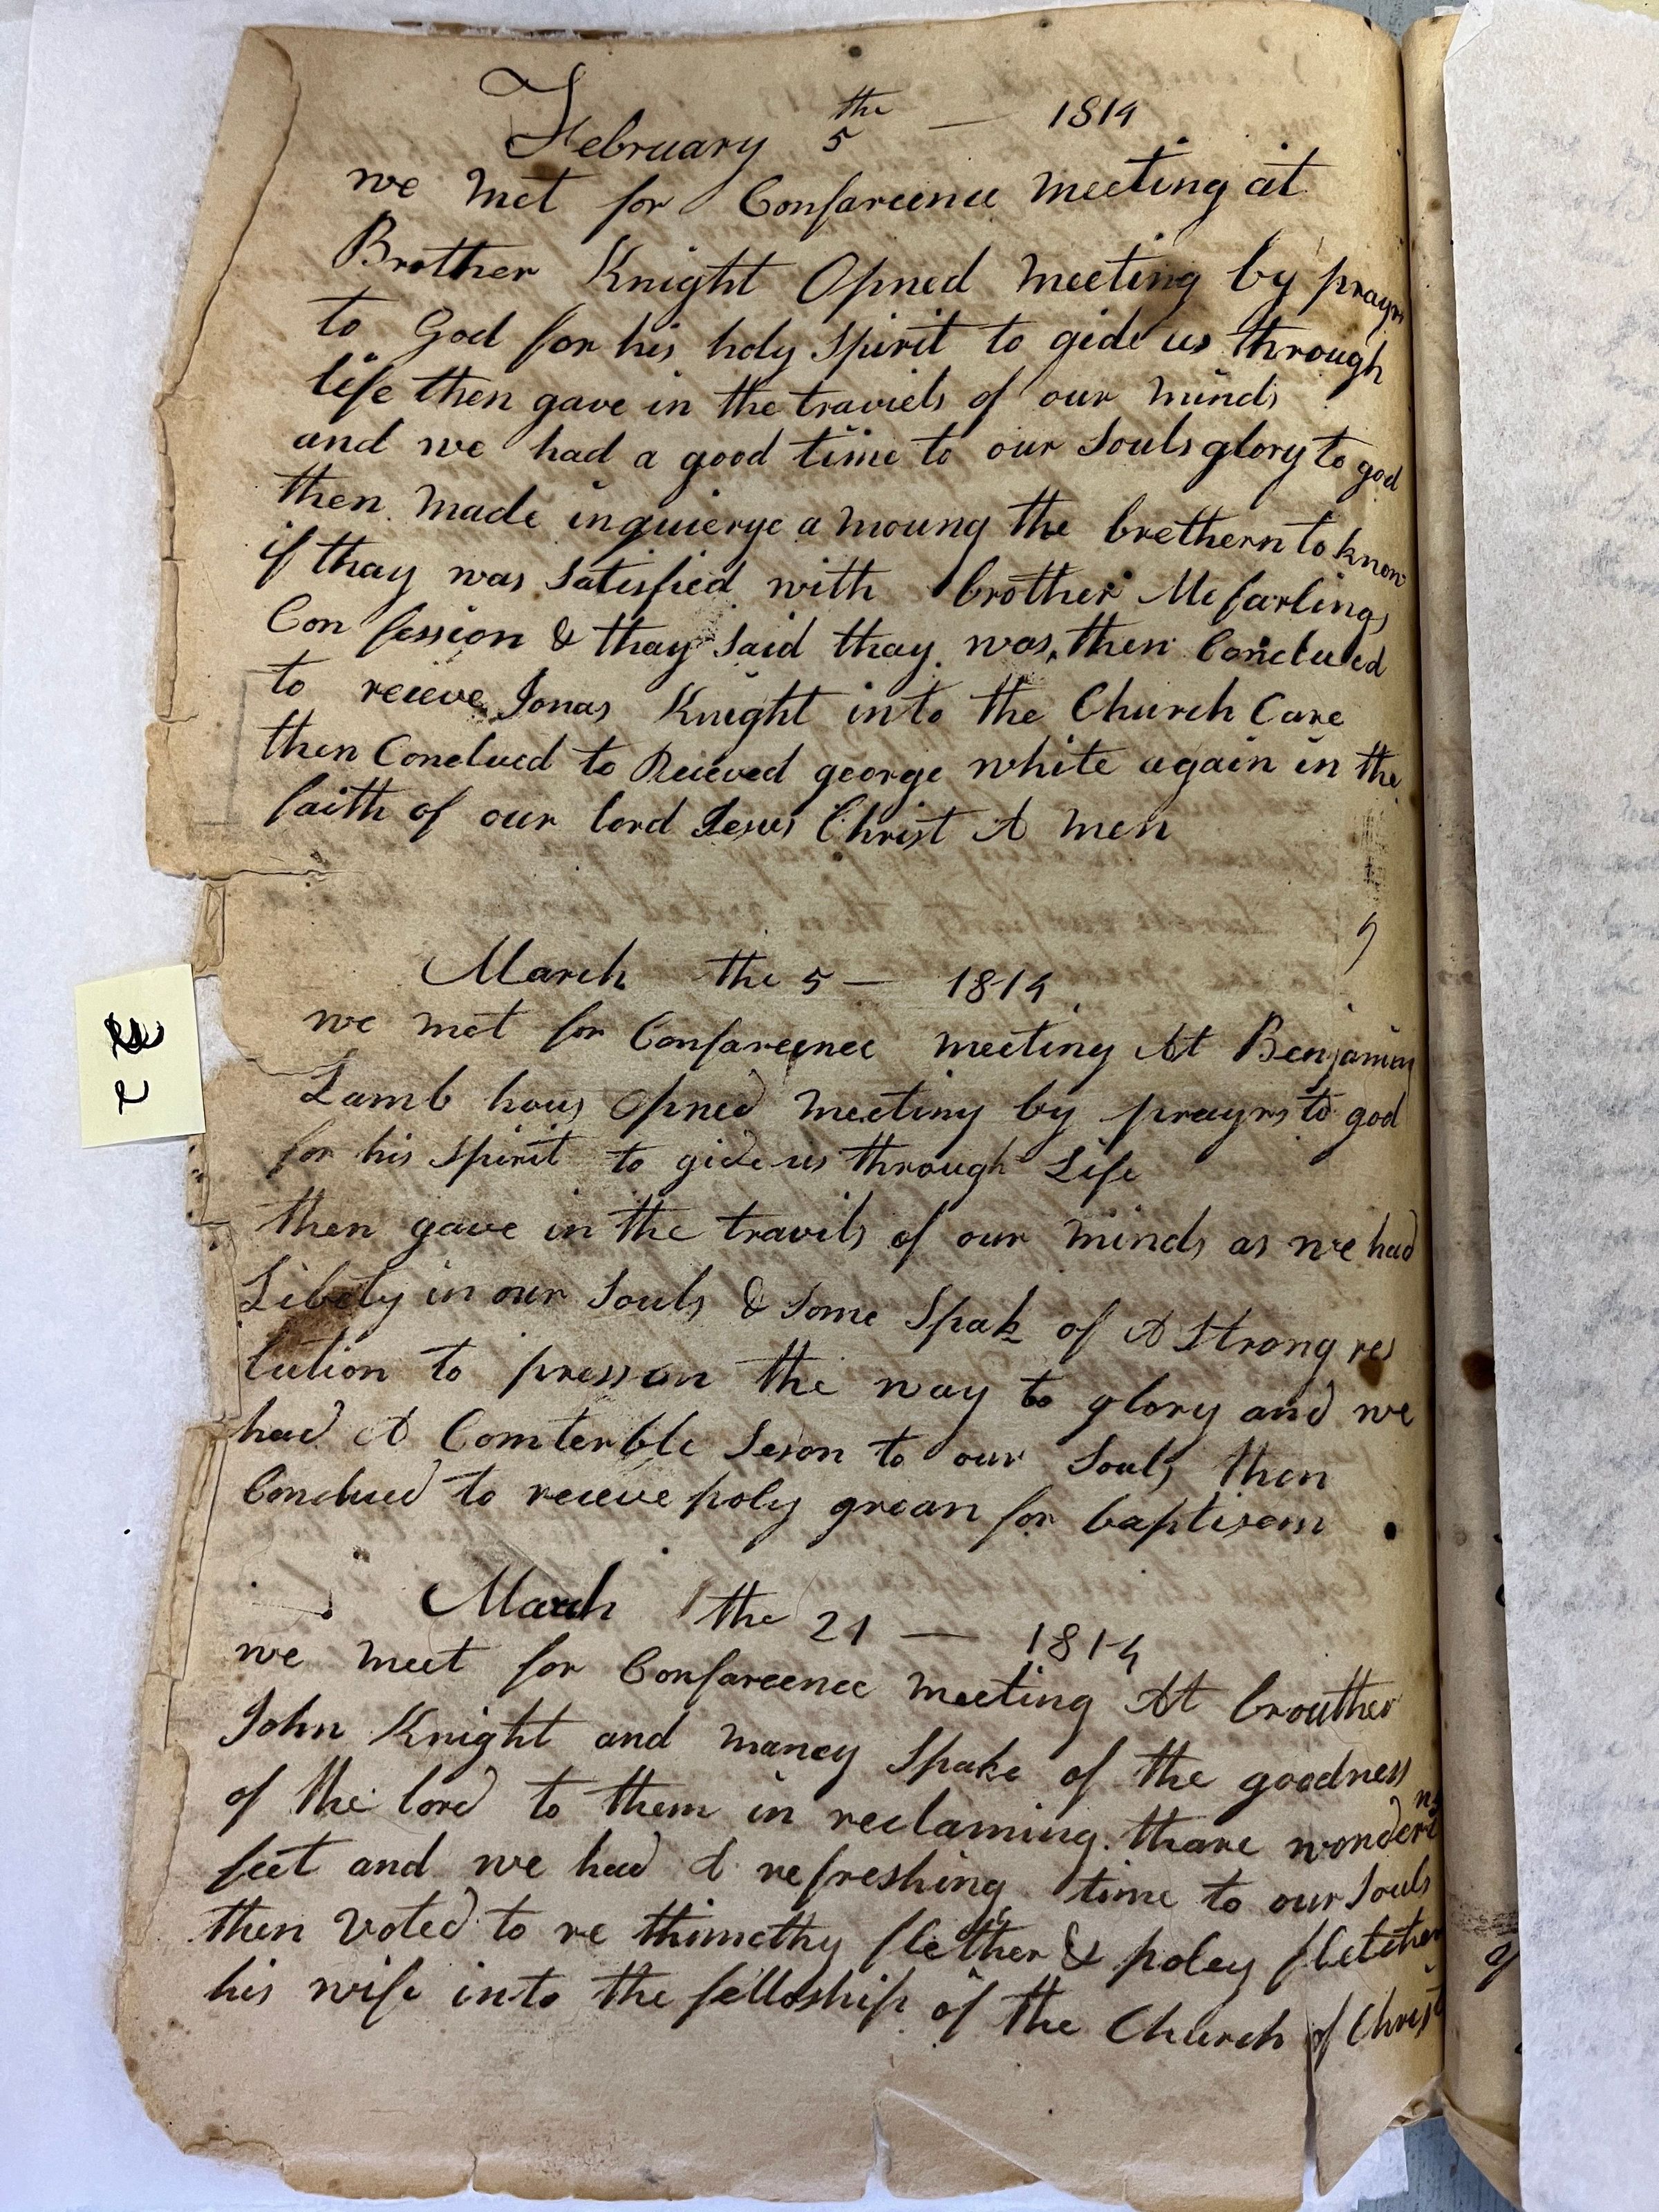 February 5th — 1814
we met for Confareence meeting at
Brother Knight Opned meeting by prayrs
to God for his holy spirit to gide us through
life then gave in the traviels of our minds
and we had a good time to our Souls glory to god
then made inquierye a moung the brethern to know
if thay was satisfied with brother Mcfarlings
Con fession & thay said thay was, then Conclued
to recieve Jonas Knight into the Church Care
then Conclued to Recieved george white again in the
faith of our lord Jesus Christ A men
March the 5 — 1814
we met for Confareence meeting At Benjamin
Lamb hous Opned meeting by prayrs to god
for his spirit to gide us through Life
then gave in the travils of our minds as we had
Libety in our Souls & some spak of A strong res
lution to press on the way to glory and we
had A Comterble seson to our Souls then
Conclued to recieve poly grean for baptisom
March the 21 — 1814
we meet for Confareence meeting At brouther
John Knight and maney spake of the goodness
of the lord to them in reclaming thare wondering
feet and we had A refreshing time to our Souls
then voted to re thimothy flether & poley fletcher
his wife into the felloship of the Church of Christ